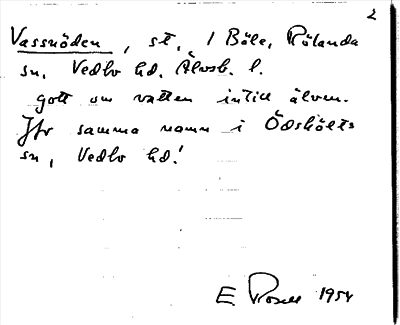 2
Vassnöden, st., 1 Böle, Rölanda
sn, Vedbo hd. Älvsb. l.
gott om vatten intill älven.
Jfr samma namn i Ödskölts
sn, Vedbo hd!
E Rosell 1954